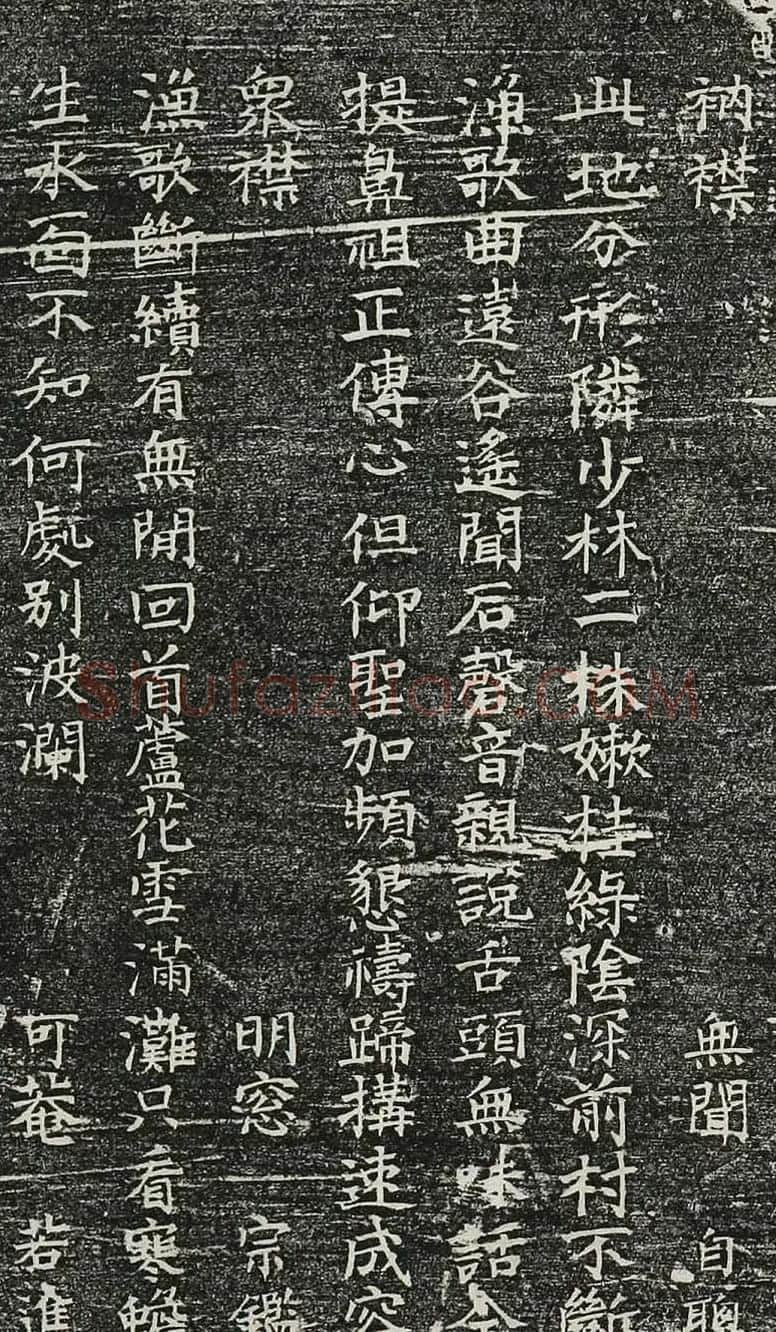 衲襟 無聞 自聰
此地分形隣少林二株嫰桂綠陰深前村不斷
漁歌曲遠谷遙聞石磬音親說舌頭無味話全
提鼻祖正傳心但仰聖加頻懇禱蹄搆速成
衆襟 明窓 宗鑑
漁歌斷續有無閒回首蘆花雪滿灘只看寒蟾
生水面不知何處別波瀾 可菴 若進
shufaziliao.com